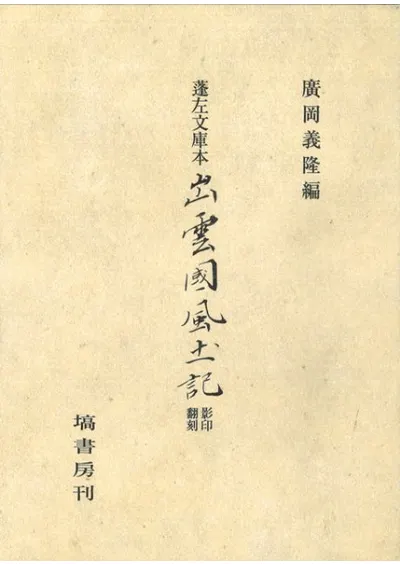 廣岡義隆編
蓬左文庫本 出雲國風土記 影印
翻刻
塙書房刊